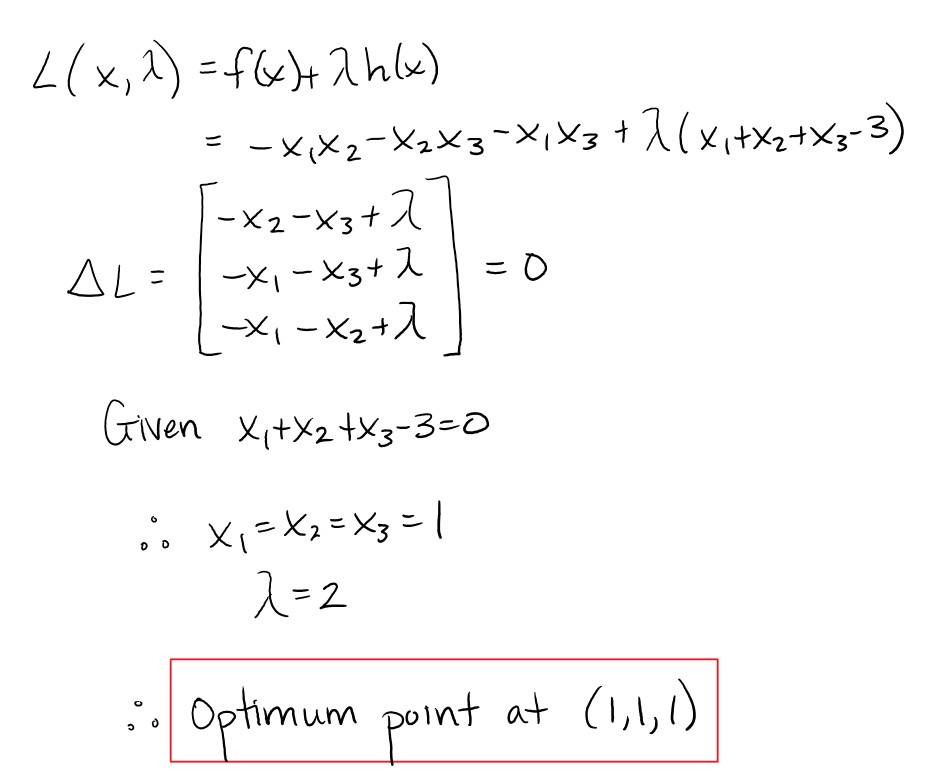 L(x, λ) = f(x) + λh(x)
= -x₁x₂ - x₂x₃ - x₁x₃ + λ(x₁+x₂+x₃-3)
ΔL = [ -x₂ - x₃ + λ
-x₁ - x₃ + λ
-x₁ - x₂ + λ ] = 0
Given x₁+x₂+x₃-3=0
∴ x₁ = x₂ = x₃ = 1
λ = 2
∴ Optimum point at (1,1,1)